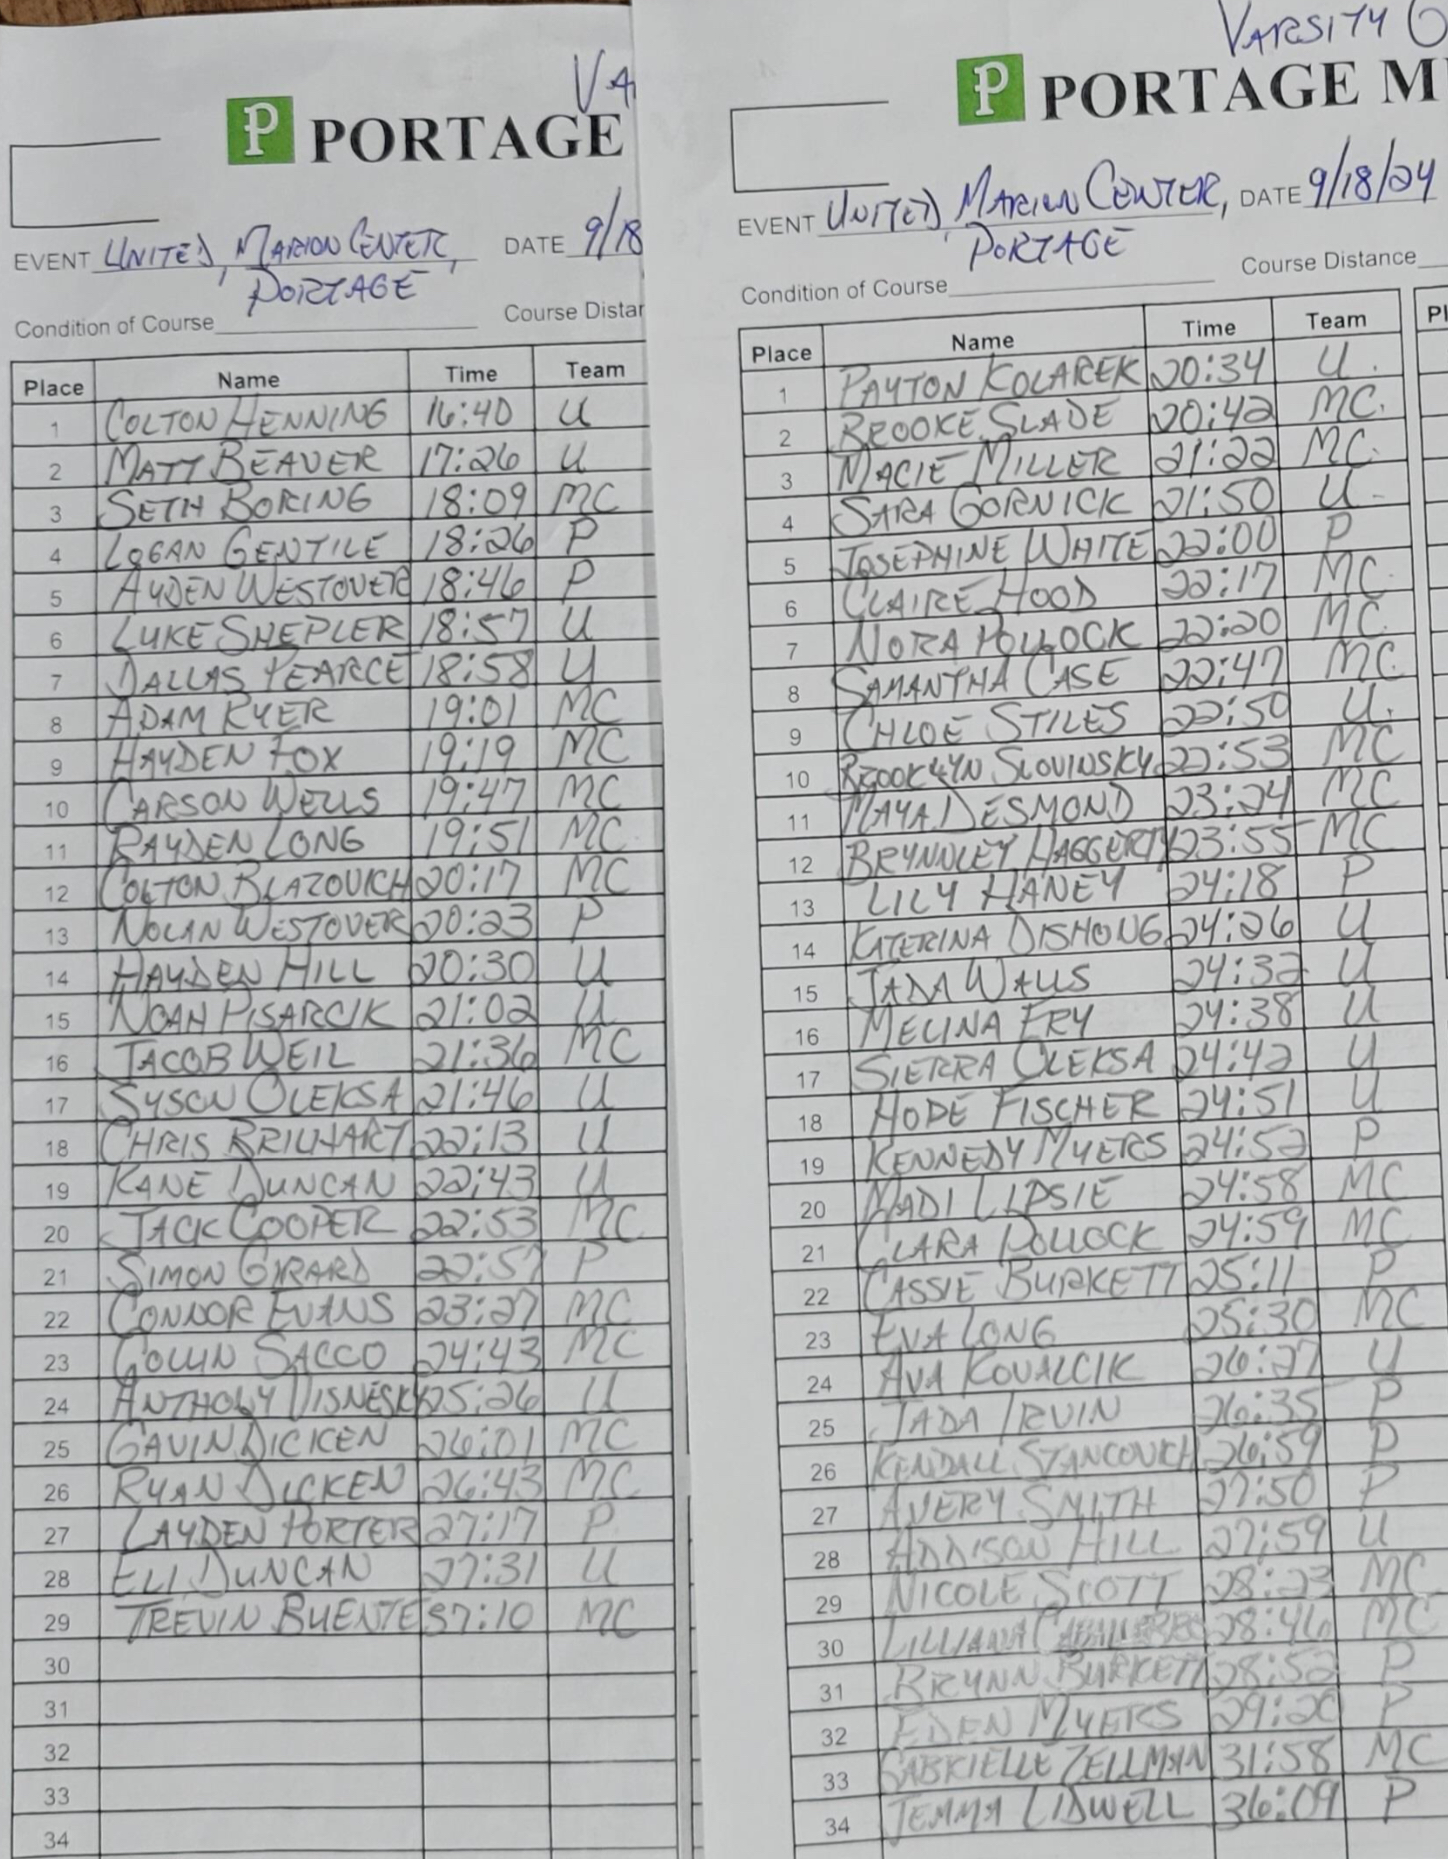 VA
P PORTAGE
EVENT UNITED, MARION CENTER, DATE 9/18
PORTAGE
Condition of Course Course Distan
Place Name Time Team
1 COLTON HENNING 16:40 U
2 MATT BEAVER 17:26 U
3 SETH BORING 18:09 MC
4 LOGAN GENTILE 18:26 P
5 AYDEN WESTOVER 18:46 P
6 LUKE SHEPLER 18:57 U
7 DALLAS PEARCE 18:58 U
8 ADAM RYER 19:01 MC
9 HAYDEN FOX 19:19 MC
10 CARSON WELLS 19:47 MC
11 RAYDEN LONG 19:51 MC
12 COLTON BLAZOVICH 20:17 MC
13 NOLAN WESTOVER 20:23 P
14 HAYDEN HILL 20:30 U
15 NOAH PISARCIK 21:02 U
16 JACOB WEIL 21:36 MC
17 SYSON OLEKSA 21:46 U
18 CHRIS BRILHART 22:13 U
19 KANE DUNCAN 22:43 U
20 JACK COOPER 22:53 MC
21 SIMON GIRARD 22:57 P
22 CONNOR EVANS 23:27 MC
23 COLLIN SACCO 24:43 MC
24 ANTHONY DISNESKY 25:26 U
25 GAVIN DICKEN 26:01 MC
26 RYAN DICKEN 26:43 MC
27 LAYDEN PORTER 27:17 P
28 ELI DUNCAN 27:31 U
29 TREVIN BUENTE 37:10 MC
30
31
32
33
34
VARSITY G
P PORTAGE M
EVENT UNITED, MARION CENTER, DATE 9/18/24
PORTAGE
Condition of Course Course Distance
Place Name Time Team Pl
1 PAYTON KOLAREK 20:34 U.
2 BROOKE SLADE 20:42 MC.
3 MACIE MILLER 21:22 MC.
4 SARA GORNICK 21:50 U.
5 JOSEPHINE WHITE 22:00 P
6 CLAIRE HOOD 22:17 MC.
7 NORA POLLOCK 22:20 MC.
8 SAMANTHA CASE 22:47 MC.
9 CHLOE STILES 22:50 U.
10 BROOKLYN SLOVINSKY 22:53 MC
11 MAYA DESMOND 23:24 MC
12 BRYNNLEY HAGGERTY 23:55 MC
13 LILY HANEY 24:18 P
14 KATERINA DISHONG 24:26 U
15 JADA WALLS 24:32 U
16 MELINA FRY 24:38 U
17 SIERRA OLEKSA 24:42 U
18 HOPE FISCHER 24:51 U
19 KENNEDY MYERS 24:52 P
20 MADI LIPSIE 24:58 MC
21 CLARA POLLOCK 24:59 MC
22 CASSIE BURKETT 25:11 P
23 EVA LONG 25:30 MC
24 AVA KOVALCIK 26:27 U
25 JADA IRVIN 26:35 P
26 KENDALL STANCOVICH 26:59 P
27 AVERY SMITH 27:50 P
28 ADDISON HILL 27:59 U
29 NICOLE SCOTT 28:23 MC
30 LILLIANA 28:46 MC
31 BRYNN BURKETT 28:52 P
32 EDEN MYERS 29:20 P
33 GABRIELLE ZELLMAN 31:58 MC
34 JEMMA LIDWELL 36:09 P